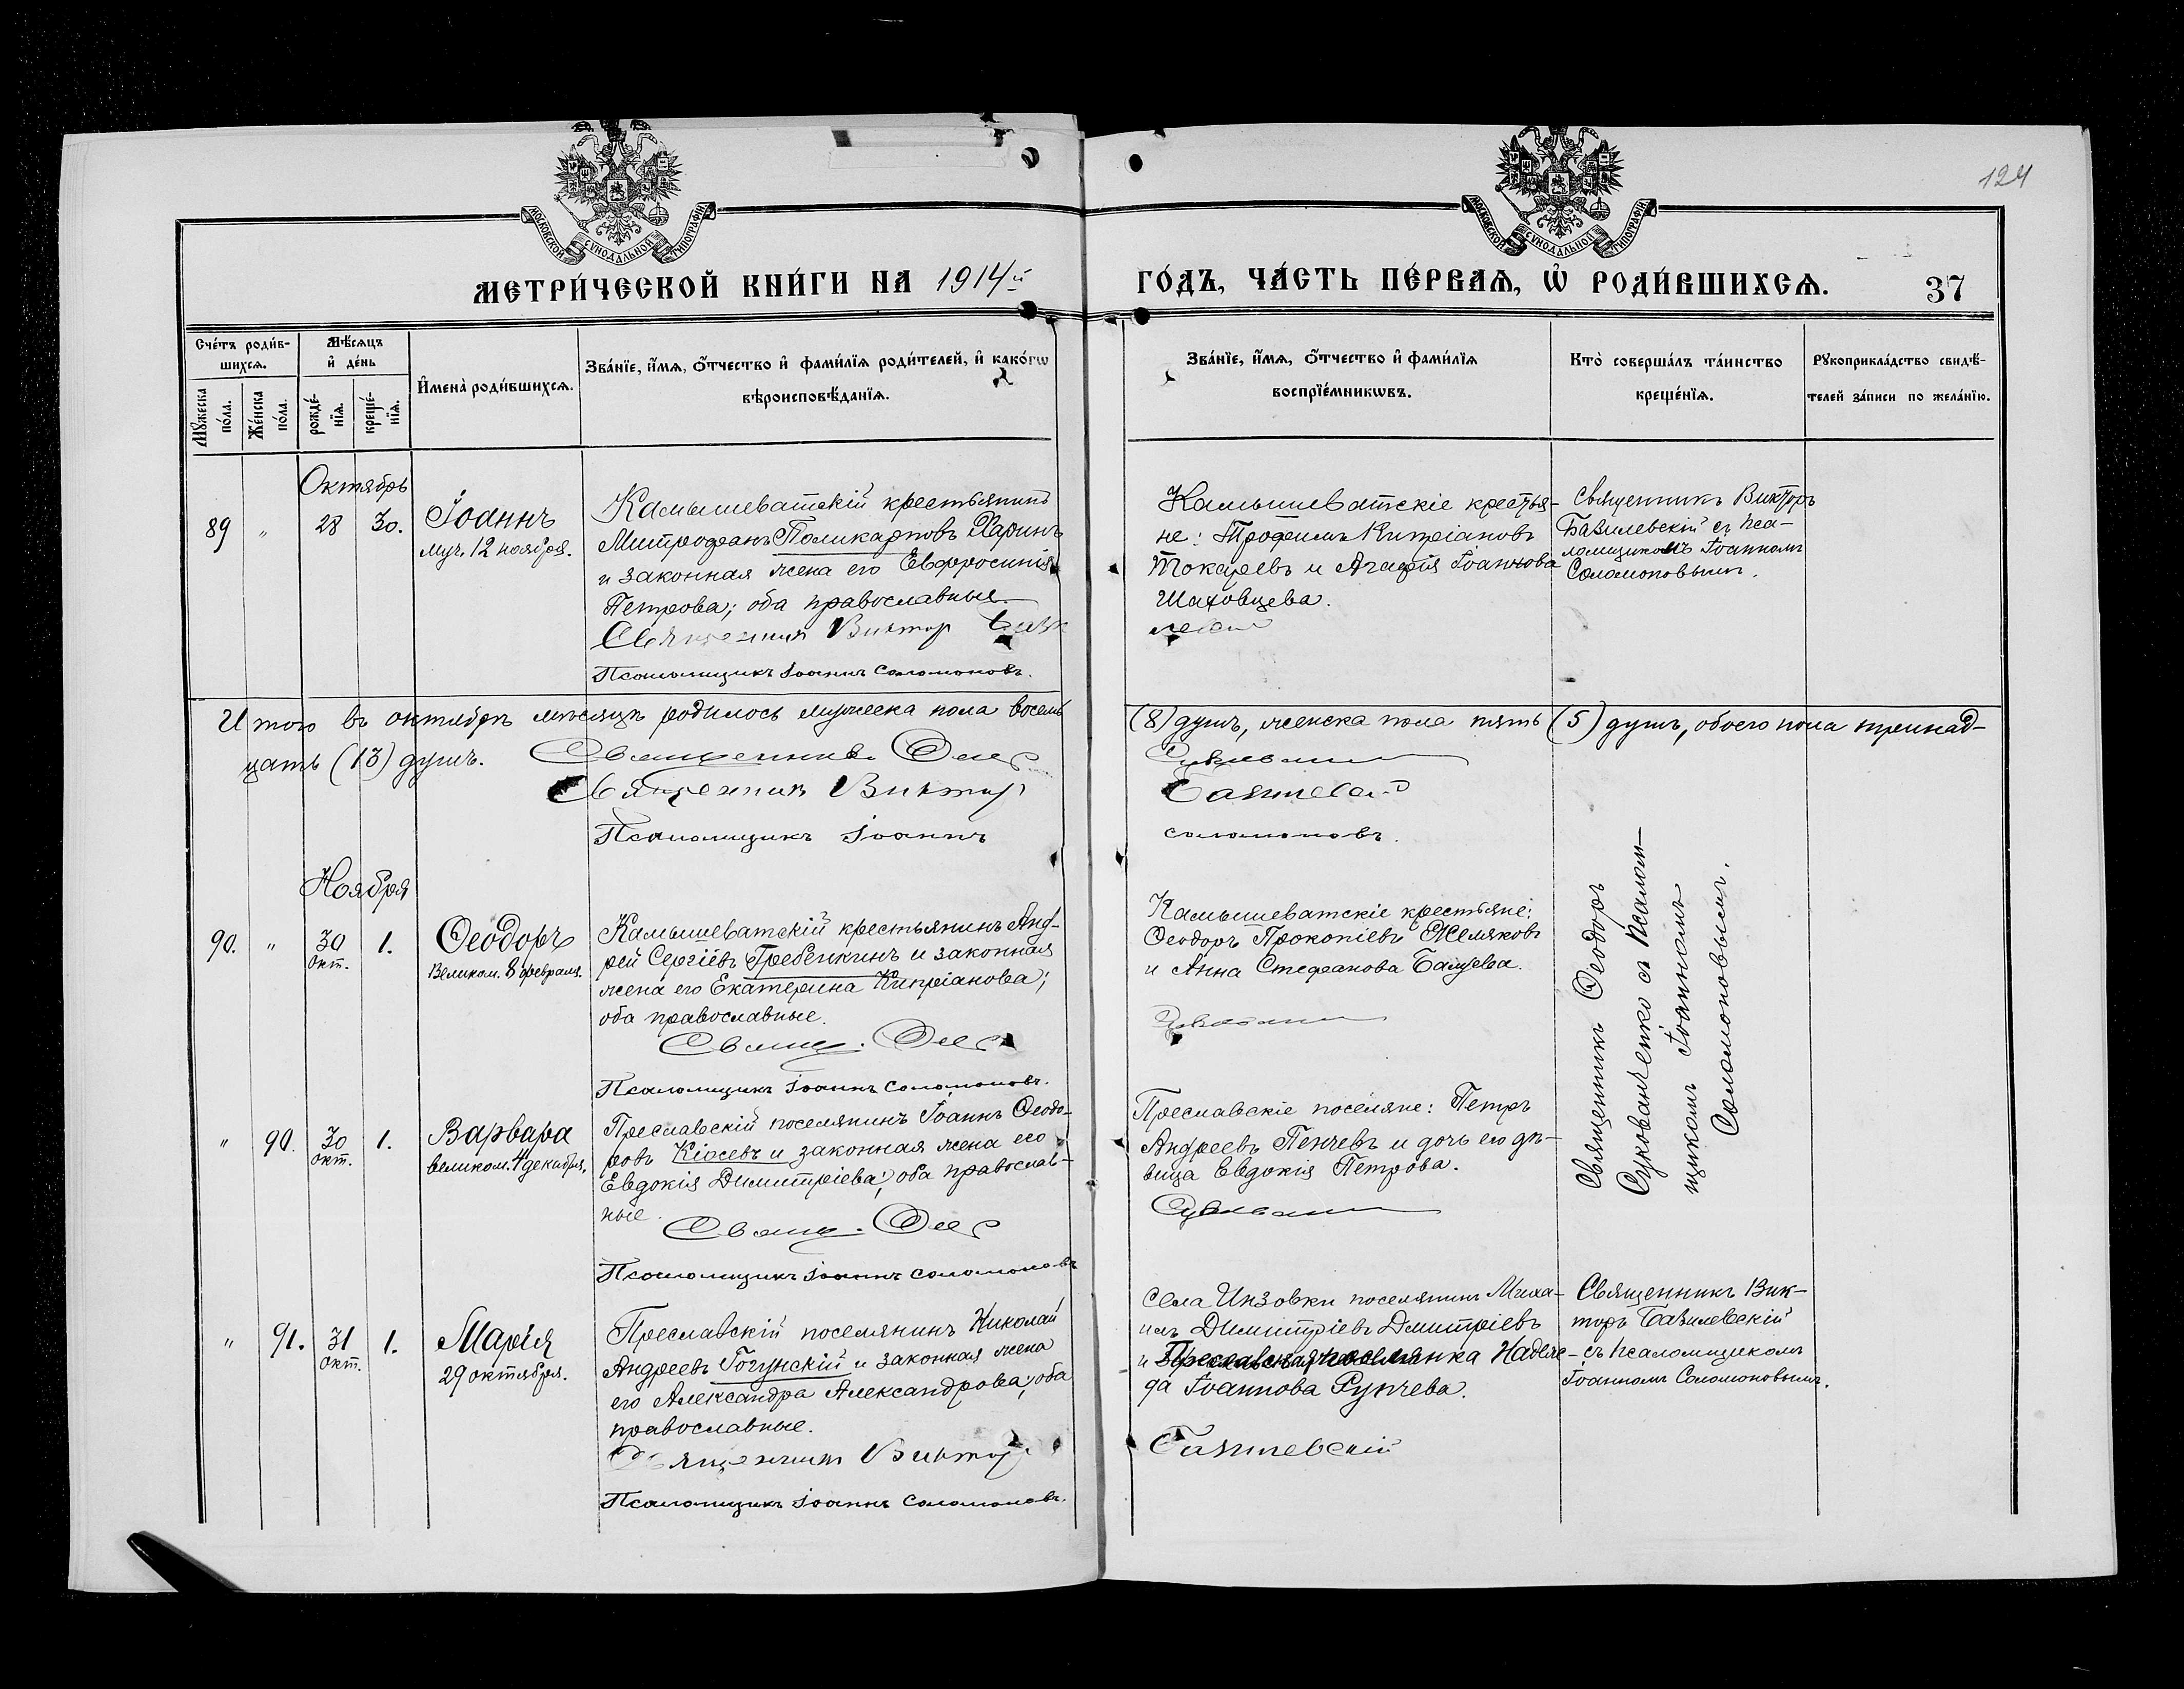 124
МОСКОВСКОЙ СѴНОДАЛЬНОЙ ТИПОГРАФІИ
МОСКОВСКОЙ СѴНОДАЛЬНОЙ ТИПОГРАФІИ
МЕТРИ́ЧЕСКОЙ КНИ́ГИ НА 1914й
ГО́ДЪ, ЧА́СТЬ ПЕ́РВАѦ, Ѡ҆ РОДИ́ВШИХСѦ. 37
Сче́тъ роди́в-
шихсѧ.
Мꙋ́жеска
по́ла.
Же́нска
по́ла.
Мѣ́сѧцъ
и҆ де́нь
рожде́-
нїѧ.
креще́-
нїѧ.
И҆мена̀ роди́вшихсѧ.
Зва́нїе, и҆́мѧ, ѻ҆́тчество и҆ фами́лїѧ роди́телей, и҆ како́гѡ
вѣроисповѣ́данїѧ.
Зва́нїе, и҆́мѧ, ѻ҆́тчество и҆ фами́лїѧ
воспрїе́мникѡвъ.
Кто̀ соверша́лъ та́инство
креще́нїѧ.
Рꙋкоприкла́дство свидѣ́-
телей за́писи по жела́нїю.
Октябрь
89 " 28 30.
Іоаннъ
муч. 12 ноября.
Камышеватскій крестьянинъ
Митрофанъ Поликарповъ Харинъ
и законная жена его Евфросинія
Петрова; оба православные.
Священникъ Викторъ
Псаломщикъ Іоаннъ Соломоновъ.
Камышеватскіе крестья-
не: Трофимъ Кипріановъ
Токаревъ и Агафія Іоаннова
Шаховцева.
Священникъ Викторъ
Базилевскій съ пса-
ломщикомъ Іоанномъ
Соломоновымъ.
Итого въ октябрѣ мѣсяцѣ родилось мужеска пола восемь
(8) душъ, женска пола пять (5) душъ, обоего пола тринад-
цать (13) душъ. Священникъ Ѳеод
Священникъ Викторъ
Базилевскій
Псаломщикъ Іоаннъ
Соломоновъ.
Ноября
90. " 30 окт. 1.
Ѳеодоръ
Великом. 8 февраля.
Камышеватскій крестьянинъ Анд-
рей Сергіевъ Гребенкинъ и законная
жена его Екатерина Кипріанова;
оба православные.
Свящ. Ѳеод
Псаломщикъ Іоаннъ Соломоновъ.
Камышеватскіе крестьяне:
Ѳеодоръ Прокопіевъ
и Анна Стефанова
Священникъ Ѳеодоръ
Сукованченко съ псалом-
щикомъ Іоанномъ
Соломоновымъ.
" 90. 30 окт. 1.
Варвара
великом. 4 декабря.
Преславскій поселянинъ Іоаннъ Ѳеодо-
ровъ Кіосевъ и законная жена его
Евдокія Димитріева; оба православ-
ные.
Свящ. Ѳеод
Псаломщикъ Іоаннъ Соломоновъ
Преславскіе поселяне: Петръ
Андреевъ Пенчевъ и дочь его дѣ-
вица Евдокія Петрова.
" 91. 31 окт. 1.
Марія
29 октября.
Преславскій поселянинъ Николай
Андреевъ Гогунскій и законная жена
его Александра Александрова; оба
православные.
Священникъ Викторъ
Псаломщикъ Іоаннъ Соломоновъ.
Села Инзовки поселянинъ Миха-
илъ Димитріевъ Дмитріевъ
и Преславская поселянка Надеж-
да Іоаннова Рупчева.
Базилевскій
Священникъ Вик-
торъ Базилевскій
съ псаломщикомъ
Іоанномъ Соломоновымъ.